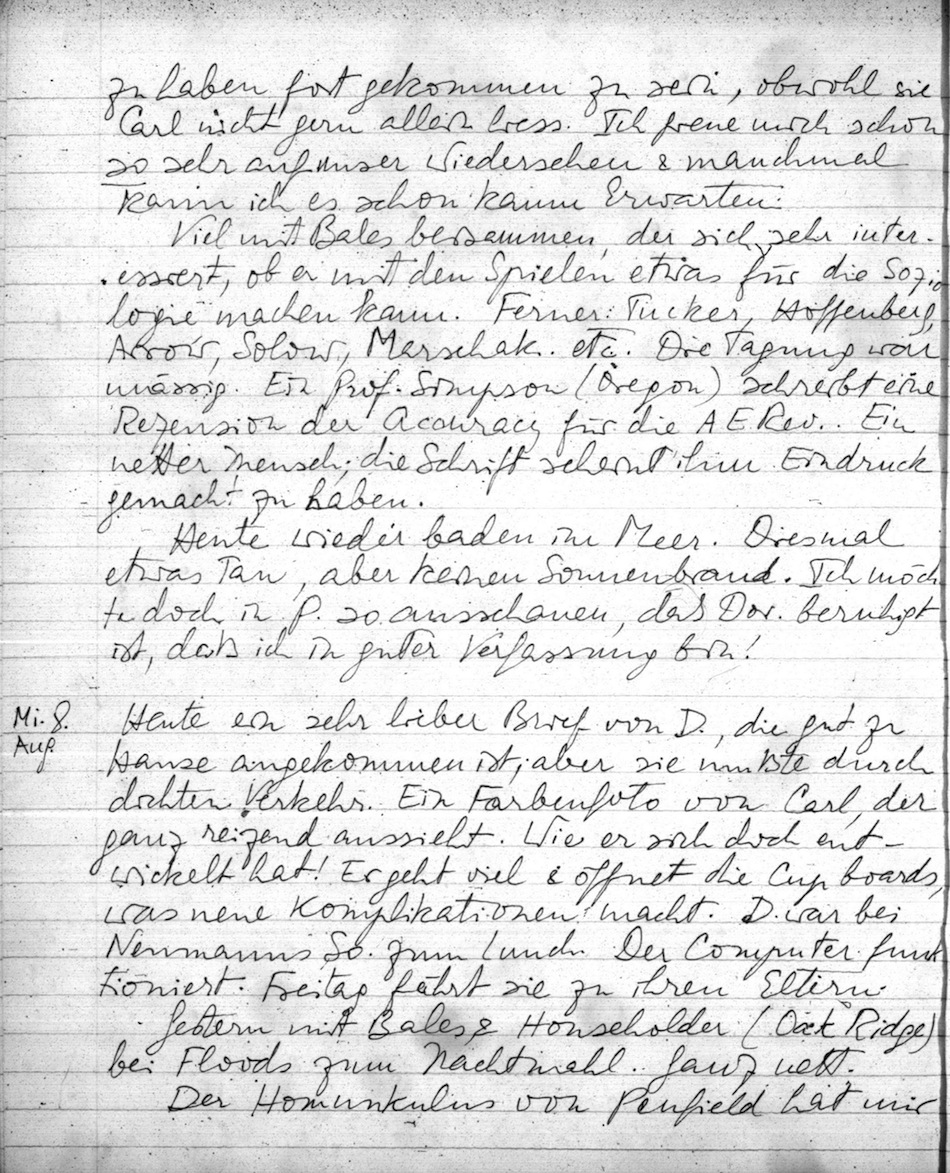 zu haben fort gekommen zu sein, obwohl sie
Carl nicht gern allein liess. Ich freue mich schon
so sehr auf unser Wiedersehen & manchmal
kann ich es schon kaum Erwarten.
Viel mit Bales beisammen, der sich sehr inter-
essiert, ob er mit den Spielen etwas für die Sozio
logie machen kann. Ferner: Tucker, Hoffenberg,
Arrow, Solow, Marschak. etc. Die Tagung war
mässig. Ein Prof. Simpson (Oregon) schreibt eine
Rezension der Accuracy für die A E. Rev.. Ein
netter Mensch; die Schrift scheint ihm Eindruck
gemacht zu haben.
Heute wieder baden im Meer. Diesmal
etwas Tan, aber keinen Sonnenbrand. Ich möch
te doch in P. so ausschauen, daß Dor. beruhigt
ist, daß ich in guter Verfassung bin!
Mi. 8.
Aug.
Heute ein sehr lieber Brief von D., die gut zu
Hause angekommen ist; aber sie mußte durch
dichten Verkehr. Ein Farbenfoto von Carl, der
ganz reizend aussieht. Wie er sich doch ent-
wickelt hat! Er geht viel & öffnet die Cupboards,
was neue Komplikationen macht. D. war bei
Neumanns So. zum Lunch. Der Computer funk
tioniert. Freitag fährt sie zu ihren Eltern.
Gestern mit Bales & Householder (Oak Ridge)
bei Floods zum Nachtmahl. Ganz nett.
Der Homunkulus von Penfield hat mir